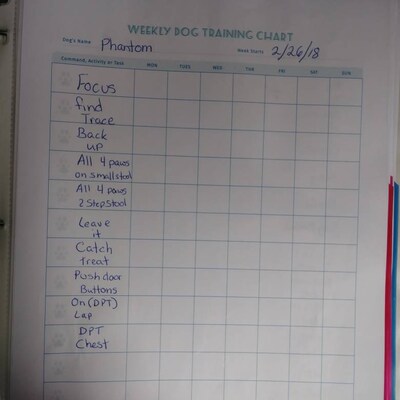 WEEKLY DOG TRAINING CHART
Dog's Name Phantom Week Starts 2/26/18
Command, Activity or Task MON TUES WED THU FRI SAT SUN
Focus
find
Trace
Back
up
All 4 paws
on small stool
All 4 paws
2 Step Stool
Leave
it
Catch
treat
Push door
Buttons
On (DPT)
Lap
DPT
Chest